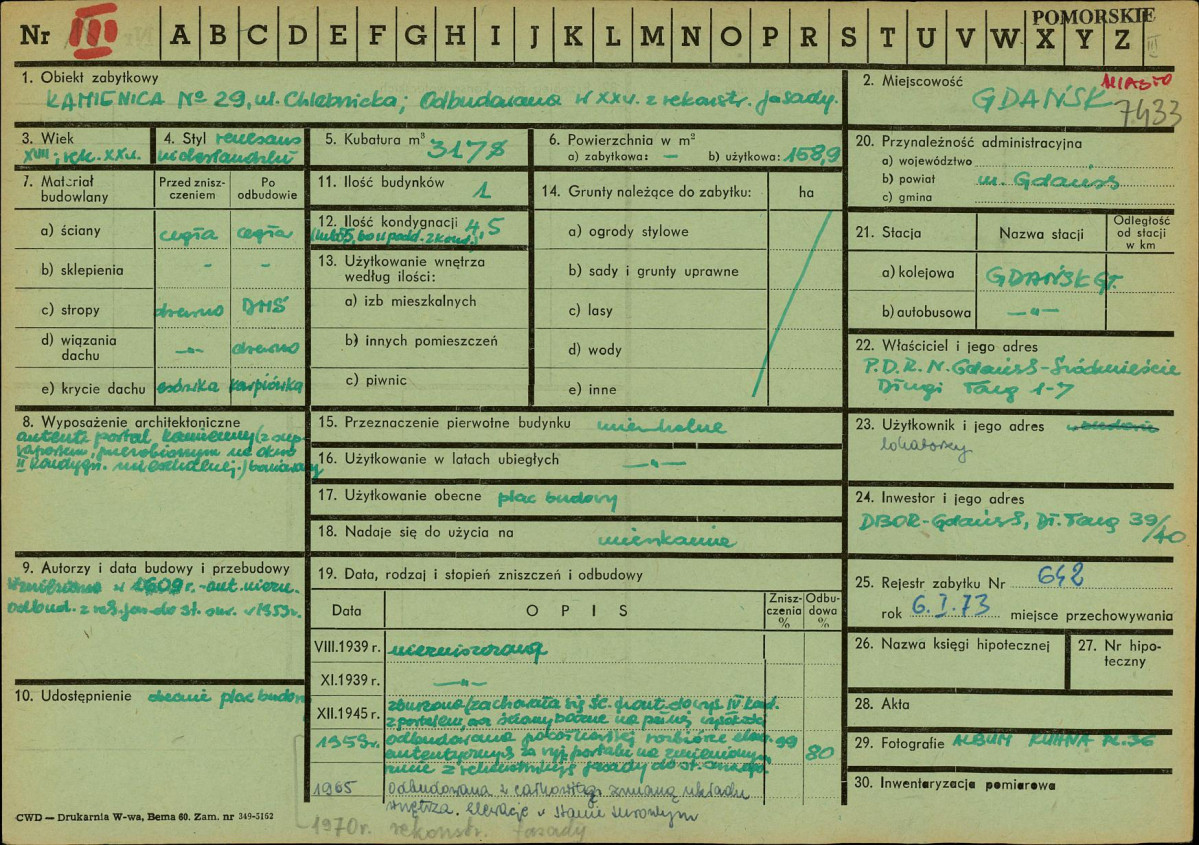 POMORSKIE
Nr III A B C D E F G H I J K L M N O P R S T U V W X Y Z III
1. Obiekt zabytkowy
KAMIENICA No 29, ul. Chlebnicka; Odbudowana w XXw. z rekonstr. fasady.
2. Miejscowość MIASTO
GDAŃSK 7433
3. Wiek
XVII; rek. XXw.
4. Styl renesans
niderlandzki
5. Kubatura m³ 3178
6. Powierzchnia w m²
a) zabytkowa: — b) użytkowa: 158,9
7. Materiał budowlany
Przed zniszczeniem
Po odbudowie
a) ściany cegła cegła
b) sklepienia - -
c) stropy drewno DMS
d) wiązania dachu —"— drewno
e) krycie dachu esówka karpiówka
8. Wyposażenie architektoniczne
autent. portal kamienny (z
przerobionym na okno
II kondygn.
9. Autorzy i data budowy i przebudowy
w 1609 r. -
odbud. z do st. w 1959r.
10. Udostępnienie obecnie plac budowy
11. Ilość budynków 1
12. Ilość kondygnacji 4,5
13. Użytkowanie wnętrza
według ilości:
a) izb mieszkalnych
b) innych pomieszczeń
c) piwnic
14. Grunty należące do zabytku: ha
a) ogrody stylowe
b) sady i grunty uprawne
c) lasy
d) wody
e) inne
15. Przeznaczenie pierwotne budynku mieszkalne
16. Użytkowanie w latach ubiegłych —"—
17. Użytkowanie obecne plac budowy
18. Nadaje się do użycia na mieszkanie
19. Data, rodzaj i stopień zniszczeń i odbudowy
Data OPIS Zniszczenia % Odbudowa %
VIII.1939 r. niezniszczona
XI.1939 r. —"—
XII.1945 r. zburzona (zachowała się śc. front. do wys. IV kond.
z portalem, oraz ściany boczne na pełnej wysokości
1959r. odbudowana po rozbiórce 99 80
autentycznych za wyj. portalu na zmienionym
z rekonstrukcją fasady do st.
1965 odbudowana z całkowitą zmianą układu
wnętrza. elewacje w stanie surowym
1970r. rekonstr. fasady
20. Przynależność administracyjna
a) województwo
b) powiat m. Gdańsk
c) gmina
21. Stacja Nazwa stacji Odległość od stacji w km
a) kolejowa GDAŃSK GŁ.
b) autobusowa —"—
22. Właściciel i jego adres
P.D.R.N. Gdańsk-Śródmieście
Długi Targ 1-7
23. Użytkownik i jego adres
lokatorzy
24. Inwestor i jego adres
DBOR-Gdańsk, Dł. Targ 39/40
25. Rejestr zabytku Nr 642
rok 6.I.73 miejsce przechowywania
26. Nazwa księgi hipotecznej
27. Nr hipoteczny
28. Akta
29. Fotografie ALBUM KUHNA PL.36
30. Inwentaryzacja pomiarowa
CWD — Drukarnia W-wa, Bema 60. Zam. nr 349-5162